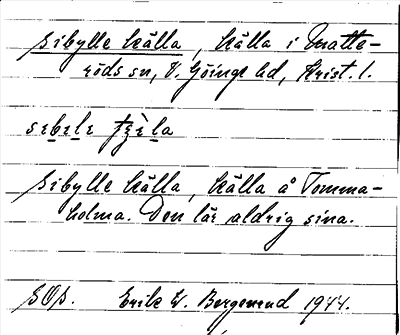 Sibylle källa, källa i Matte-
röds sn, V. Göinge hd, Krist. l.
sɛbɛlɛ
Sibylle källa, källa å Tomma-
holma. Den lär aldrig sina.
SOS. Erik W. Bergstrand 1944.